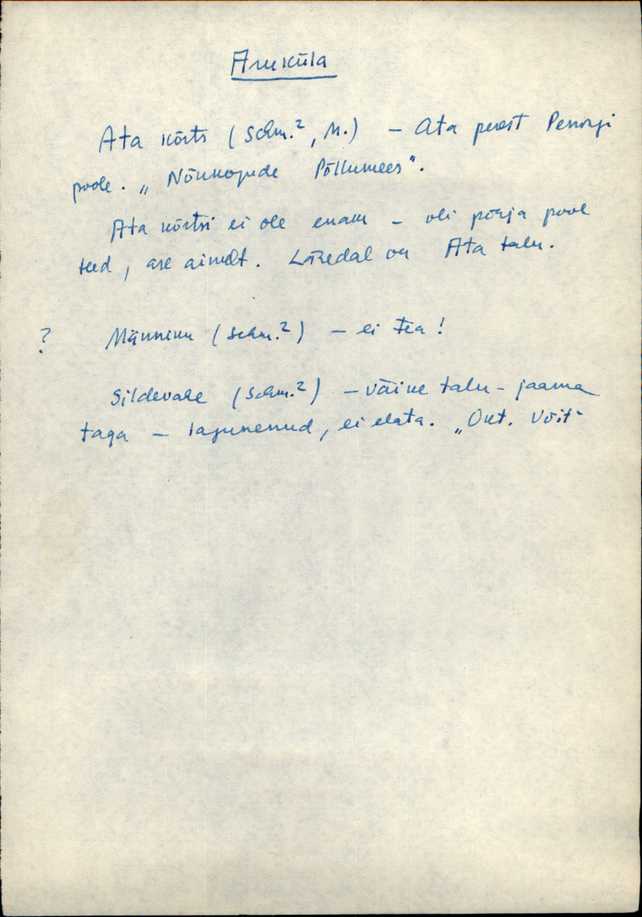 Aruküla
Ata kõrts (Schm.², M.) – Ata perest Peningi
poole. „Nõukogude Põllumees".
Ata kõrtsi ei ole enam – oli põhja pool
teed, ase ainult. Lähedal on Ata talu.
? Männiku (Schm.²) – ei tea!
Sildevahe (Schm.²) – väike talu – jaama
taga – lagunenud, ei elata. „Okt. Võit"